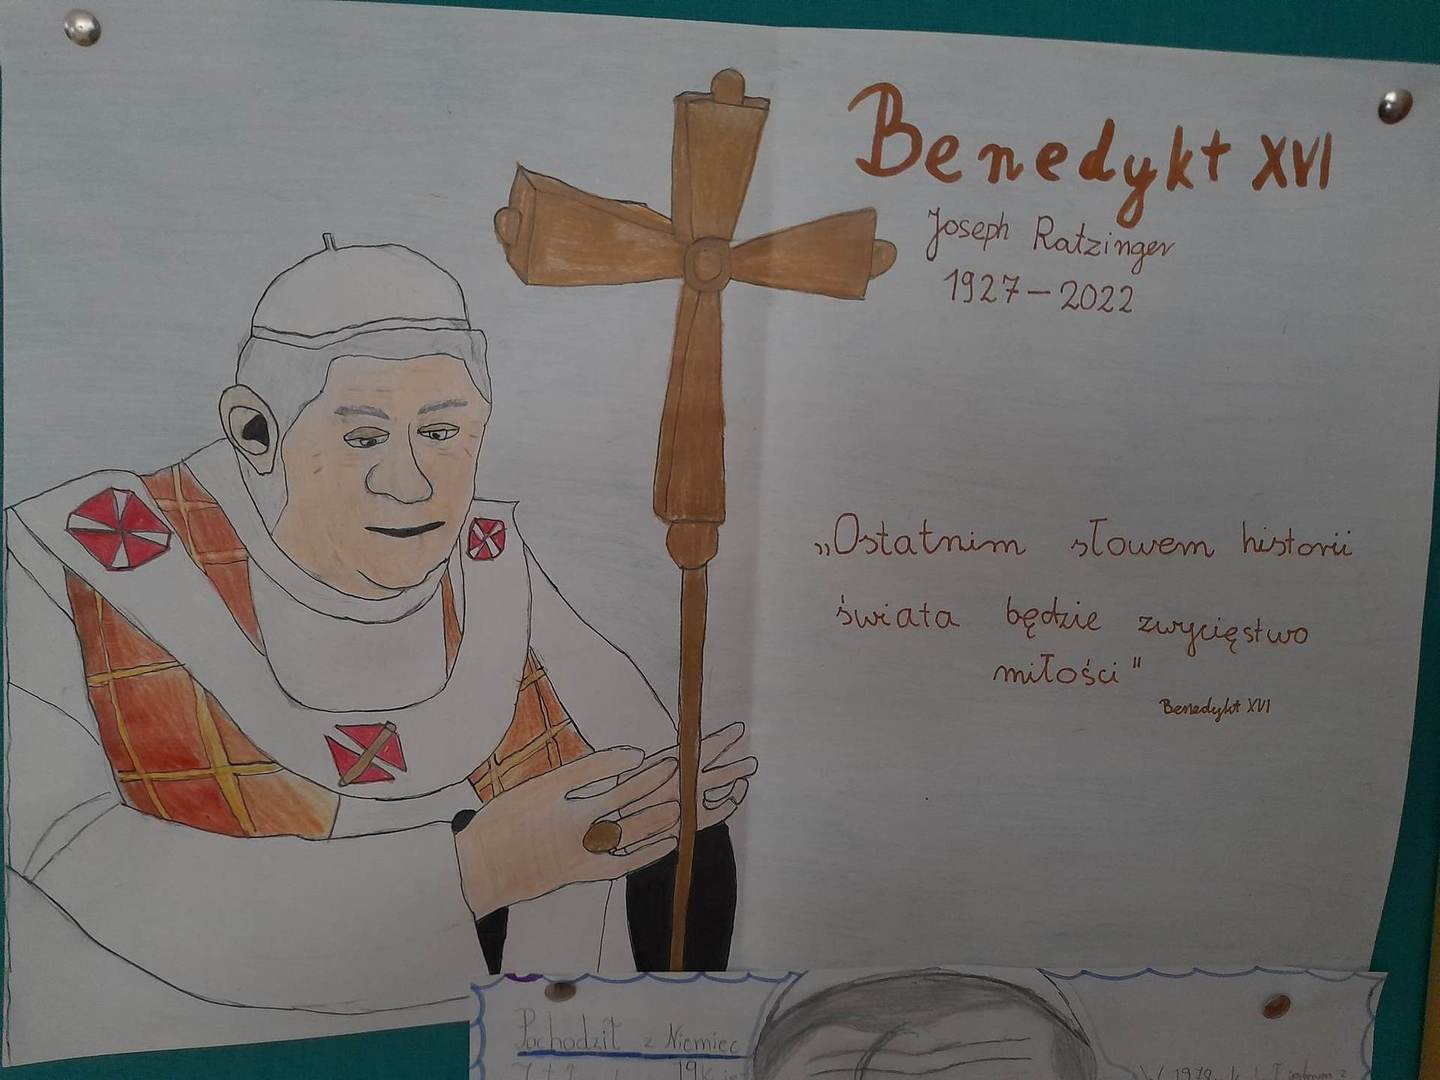 Benedykt XVI
Joseph Ratzinger
1927-2022
„Ostatnim słowem historii
świata będzie zwycięstwo
miłości"
Benedykt XVI
Pochodził z Niemiec